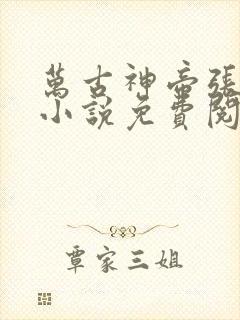 萬古神帝張
小說免費閱
覃家三姐